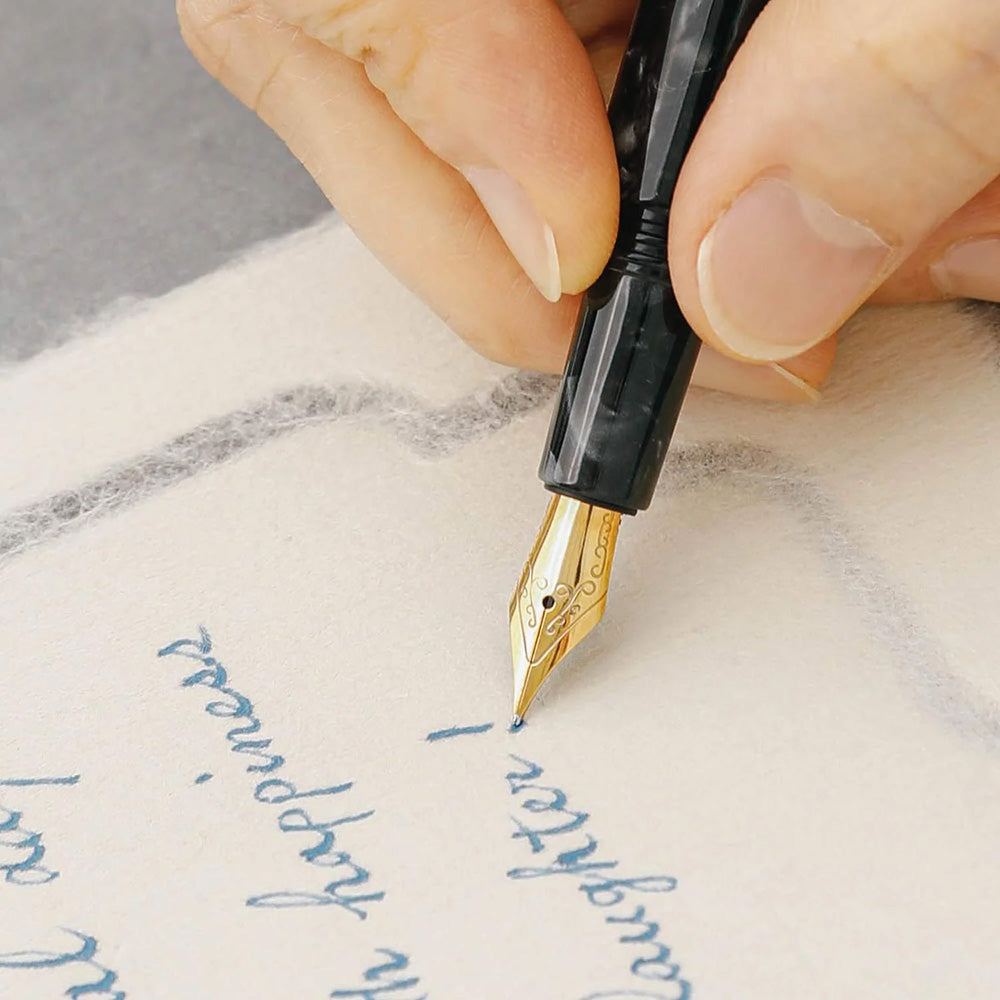 th happiness
laughter!